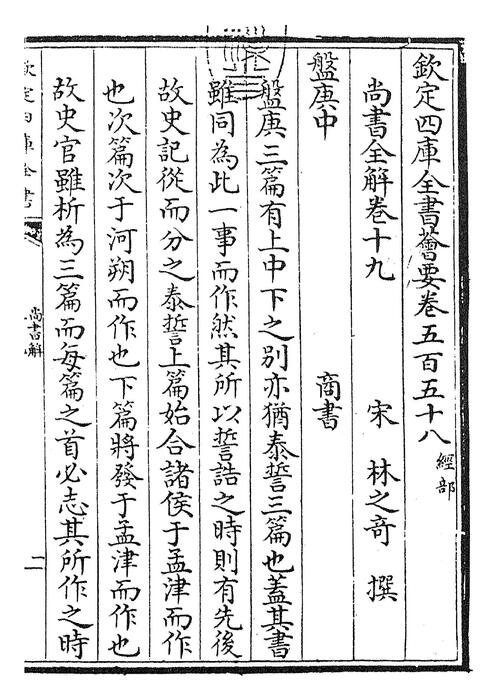 欽定四庫全書薈要卷五百五十八 經部
尚書全解卷十九 宋 林之奇 撰
盤庚中 商書
盤庚三篇有上中下之別亦猶泰誓三篇也蓋其書
雖同為此一事而作然其所以誓誥之時則有先後
故史記從而分之泰誓上篇始合諸侯于孟津而作
也次篇次于河朔而作也下篇將發于孟津而作也
故史官雖析為三篇而每篇之首必志其所作之時
欽定四庫全書
尚書解
二